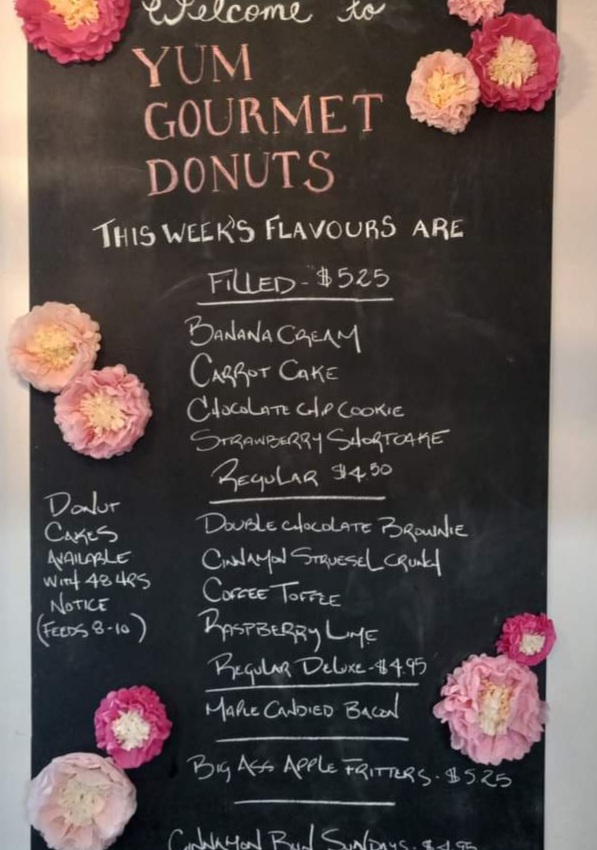 Welcome to
YUM
GOURMET
DONUTS
THIS WEEK'S FLAVOURS ARE
FILLED - $5.25
BANANA CREAM
CARROT CAKE
CHOCOLATE CHIP COOKIE
STRAWBERRY SHORTCAKE
REGULAR $4.50
DOUBLE CHOCOLATE BROWNIE
CINNAMON STRUESEL CRUNCH
COFFEE TOFFEE
RASPBERRY LIME
REGULAR DELUXE - $4.95
MAPLE CANDIED BACON
BIG ASS APPLE FRITTERS - $5.25
CINNAMON BUN SUNDAYS - $4.95
DONUT
CAKES
AVAILABLE
WITH 48 HRS
NOTICE
(FEEDS 8-10)